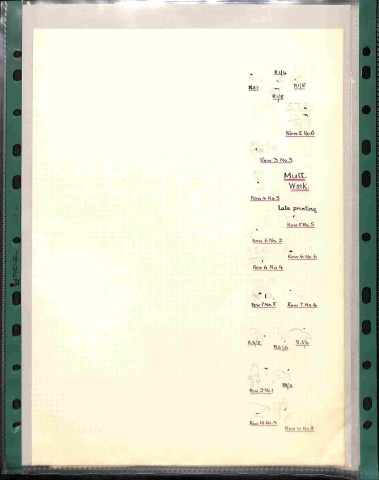 R1/4
R1/5
R1/5
Row 2 No.6
Row 3 No.3
Mult.
Wmk.
Row 4 No 3
Late printing
Row 5 No.5
Row 5 No. 2
Row 6 No. 6
Row 6 No. 4
Row 7 No. 5
Row 7 No. 6
R.8/2
Row 9 No.1
Row 10 No. 4
Row 10 No 5